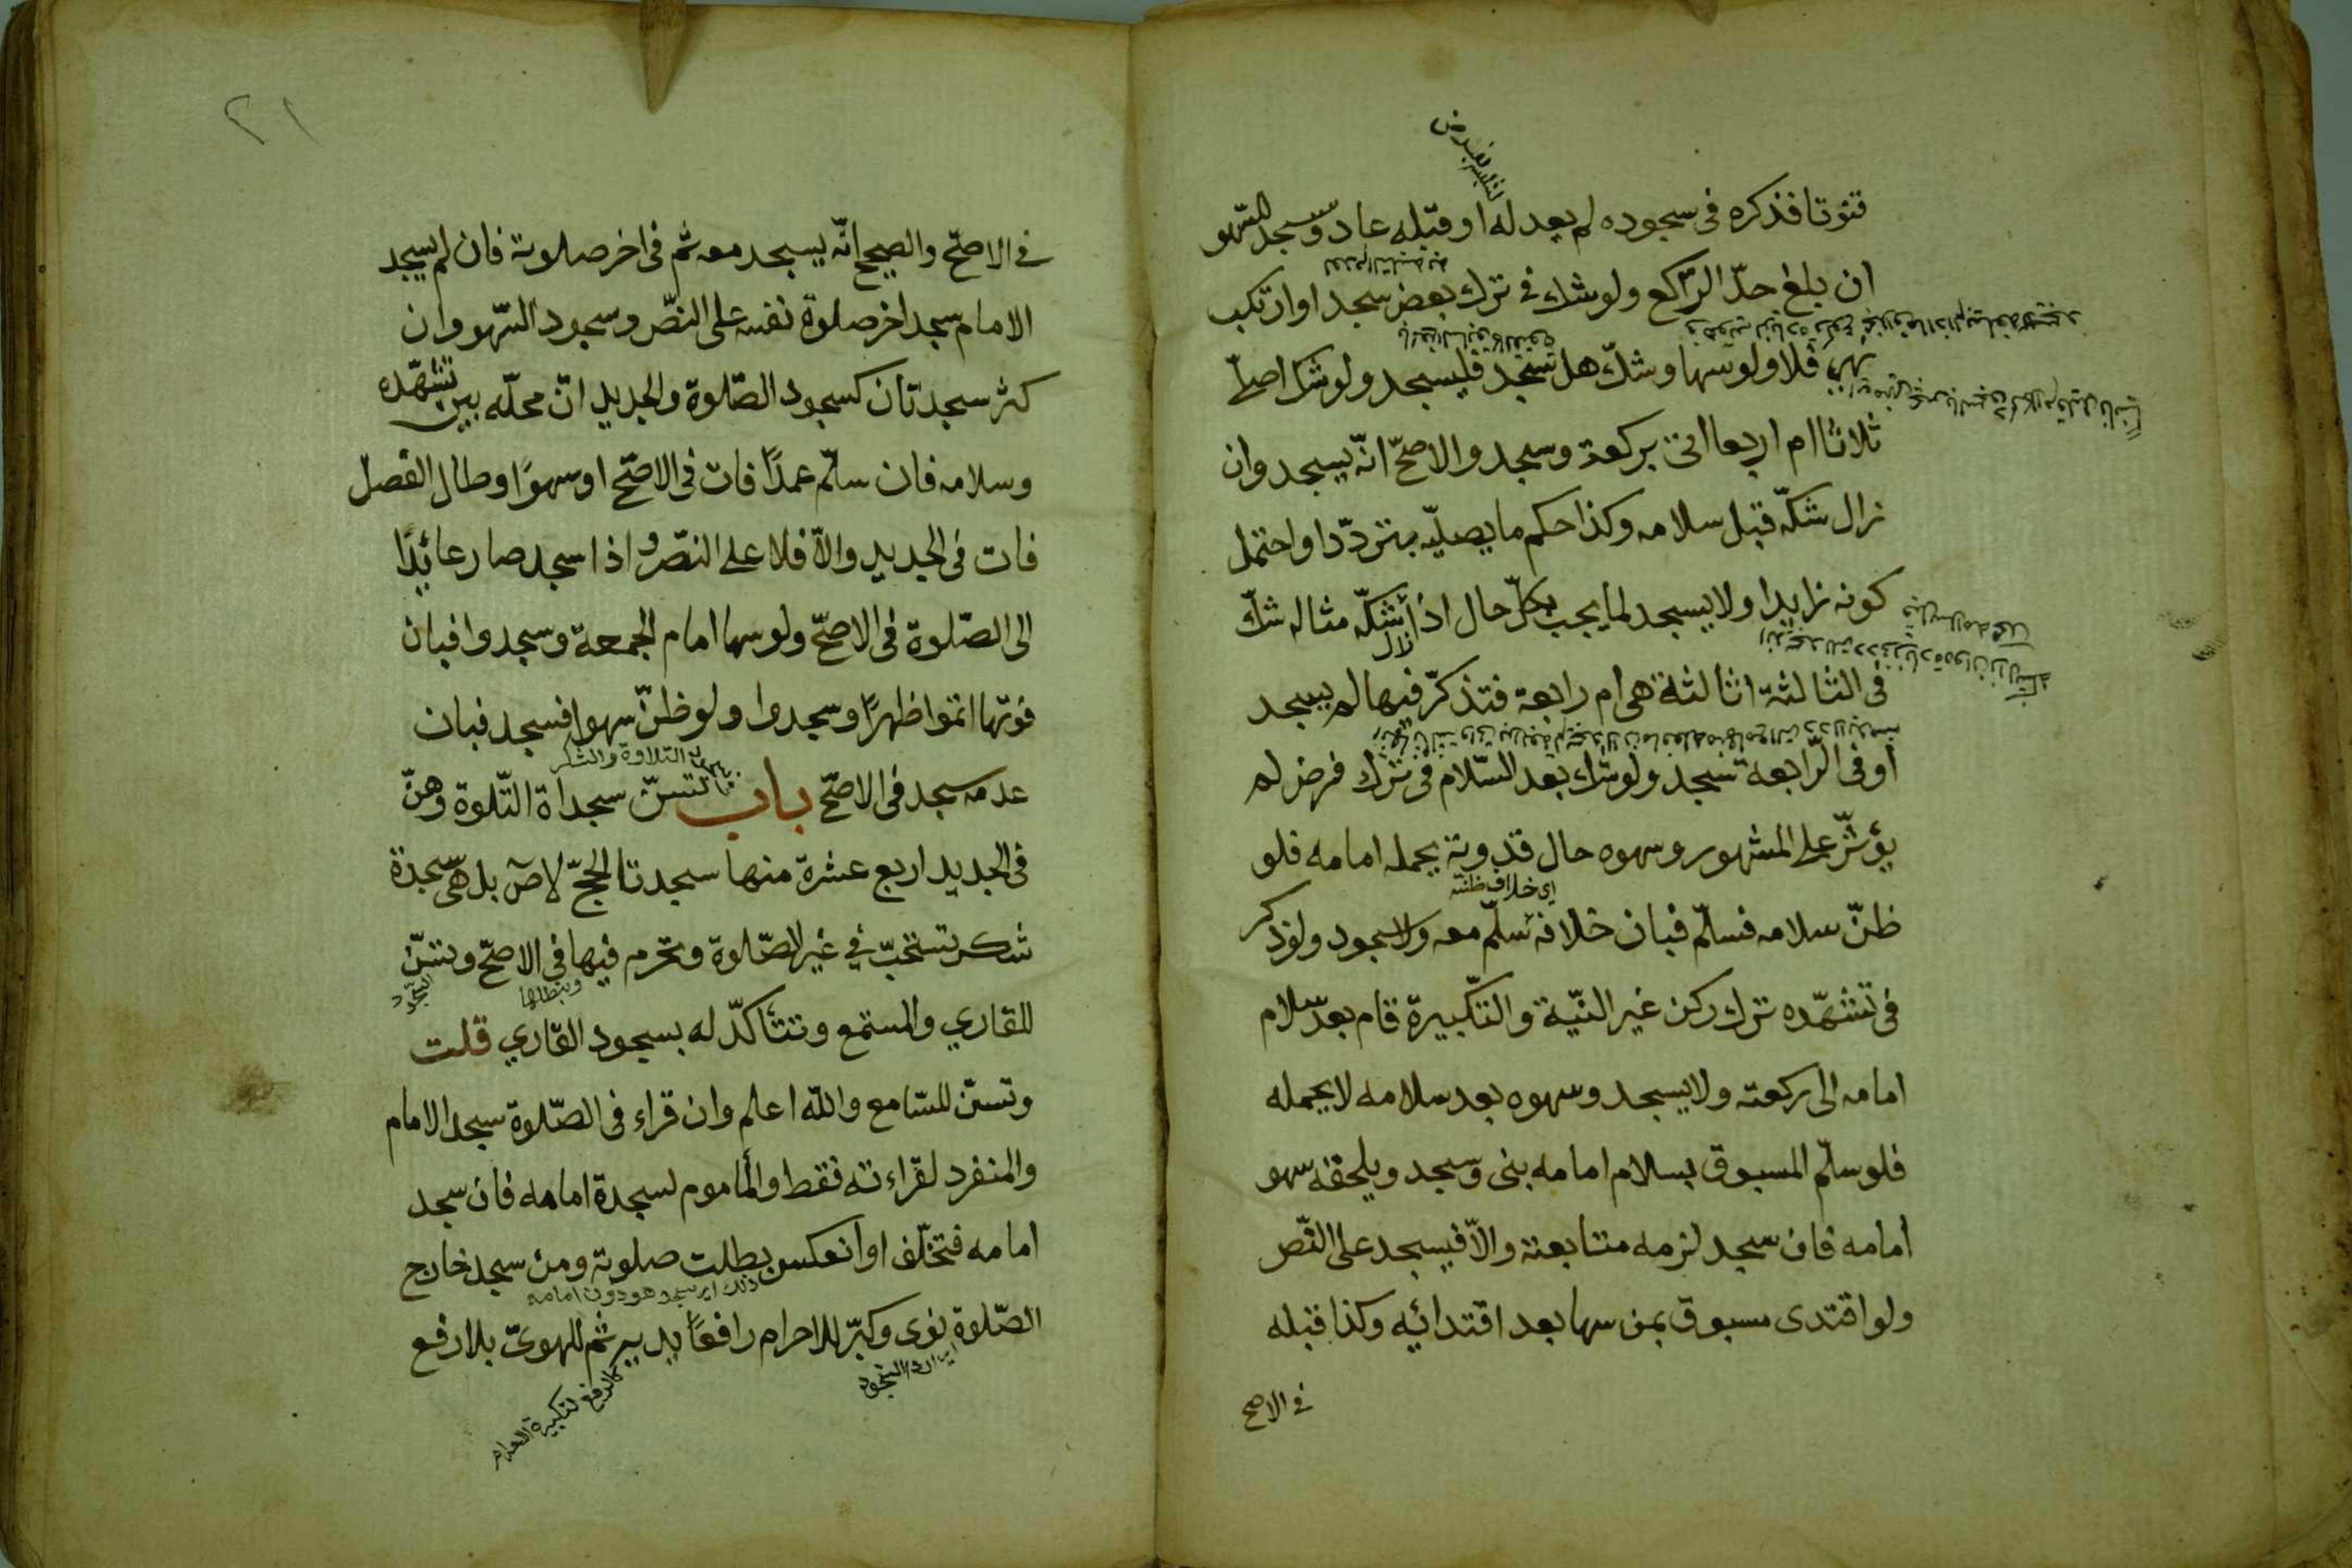 قنوتا فذكره فى سجوده لم يعد له او قبله عاد وسجد للسّهو
ان بلغ حدّ الرّاكع ولو شك في ترك بعض سجد او ارتكب
نهى فلا ولو سها وشكّ هل سجد فليسجد ولو شك اصلّى
ثلاثا ام اربعا اتى بركعة وسجد والاصحّ انّه يسجد وان
زال شكّه قبل سلامه وكذا حكم ما يصلّيه بتردّد او احتمل
كونه زايدا ولا يسجد لما يجب بكلّ حال اذا شكّه مثاله شكّ
زال
فى الثالثة اثالثة هى ام رابعة فتذكّر فيها لم يسجد
او فى الرّابعة سجد ولو شك بعد السّلام فى ترك فرض لم
يؤثّر على المشهور وسهوه حال قدوته يحمله امامه فلو
اى خلاف ظنّه
ظنّ سلامه فسلّم فبان خلافه سلّم معه ولا سجود ولو ذكر
فى تشهّده ترك ركن غير النيّة والتّكبيرة قام بعد سلام
امامه الى ركعته ولا يسجد وسهوه بعد سلامه لا يحمله
فلو سلّم المسبوق بسلام امامه بنى وسجد ويلحقه سهو
امامه فان سجد لزمه متابعته والاّ فيسجد على النّص
ولو اقتدى مسبوق بمن سها بعد اقتدائه وكذا قبله
في الاصح
٢١
في الاصحّ والصحيح انّه يسجد معه ثم فى اخر صلاوته فان لم يسجد
الامام سجد اخر صلوة نفسه على النصّ وسجود السّهو وان
كثر سجدتان كسجود الصّلوة والجديد انّ محلّه بين تشهّده
وسلامه فان سلّم عمدًا فات فى الاصحّ او سهوًا وطال الفصل
فات فى الجديد والاّ فلا على النصّ واذا سجد صار عائدًا
الى الصّلوة فى الاصحّ ولو سها امام الجمعة وسجدوا فبان
فوتها اتمّوا ظهرًا وسجدوا ولو ظنّ سهوا فسجد فبان
التلاوة والشكر
عدمه سجد فى الاصحّ باب تسنّ سجداة التّلوة وهنّ
فى الجديد اربع عشرة منها سجدتا الحجّ لا ص بل هى سجدة
شكر تستحبّ في غير الصّلوة وتحرم فيها فى الاصحّ وتسنّ
وتبطلها
السجود
للقاري والمستمع وتتأكّد له بسجود القاري قلت
وتسنّ للسّامع والله اعلم وان قراء فى الصّلوة سجد الامام
والمنفرد لقراءته فقط والمأموم لسجدة امامه فان سجد
امامه فتخلّف او انعكس بطلت صلوته ومن سجد خارج
هو دون امامه
الصّلوة نوى وكبّر للاحرام رافعًا يديه ثم للهوىّ بلا رفع
السّجود
كالرفع لتكبيرة الاحرام